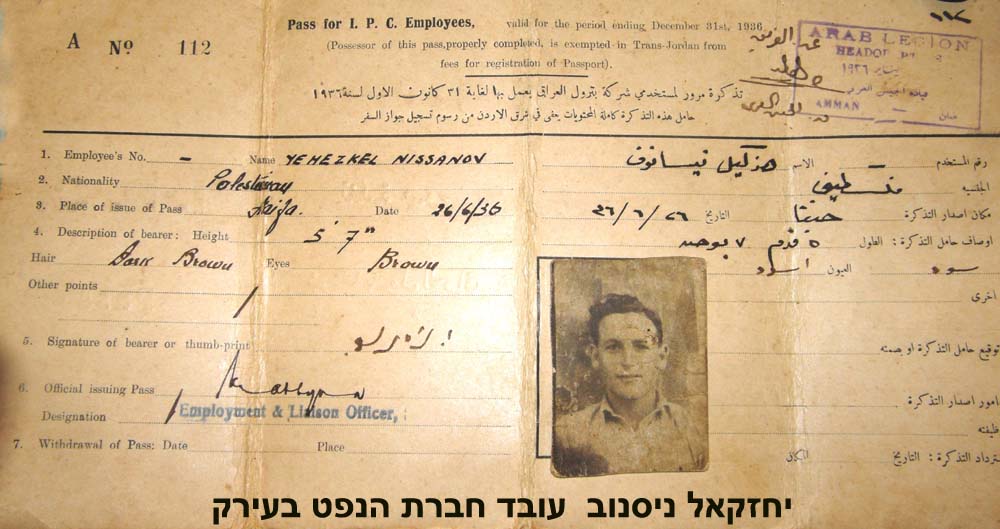 Pass for I. P. C. Employees, valid for the period ending December 31st, 1936
A No. 112
(Possessor of this pass, properly completed, is exempted in Trans-Jordan from
fees for registration of Passport).
ARAB LEGION
AMMAN
تذكرة مرور لمستخدمي شركة بترول العراق يعمل بها لغاية ٣١ كانون الاول لسنة ١٩٣٦
حامل هذه التذكرة كاملة المحتويات يعفى في شرق الاردن من رسوم تسجيل جواز السفر
1. Employee's No. – Name YEHEZKEL NISSANOV
رقم المستخدم – الاسم حزكيل نيسانوف
2. Nationality Palestinian
الجنسيه
3. Place of issue of Pass Haifa. Date 26/6/36
مكان اصدار التذكرة حيفا التاريخ ٢٦/٦/٣٦
4. Description of bearer: Height 5' 7"
اوصاف حامل التذكرة: الطول ٥ قدم ٧
Hair Dark Brown Eyes Brown
العيون اسود
Other points
اخرى
5. Signature of bearer or thumb-print
توقيع حامل التذكرة او بصمته
6. Official issuing Pass
مامور اصدار التذكرة
Designation Employment & Liaison Officer,
7. Withdrawal of Pass: Date Place
التاريخ المكان
יחזקאל ניסנוב עובד חברת הנפט בעירק